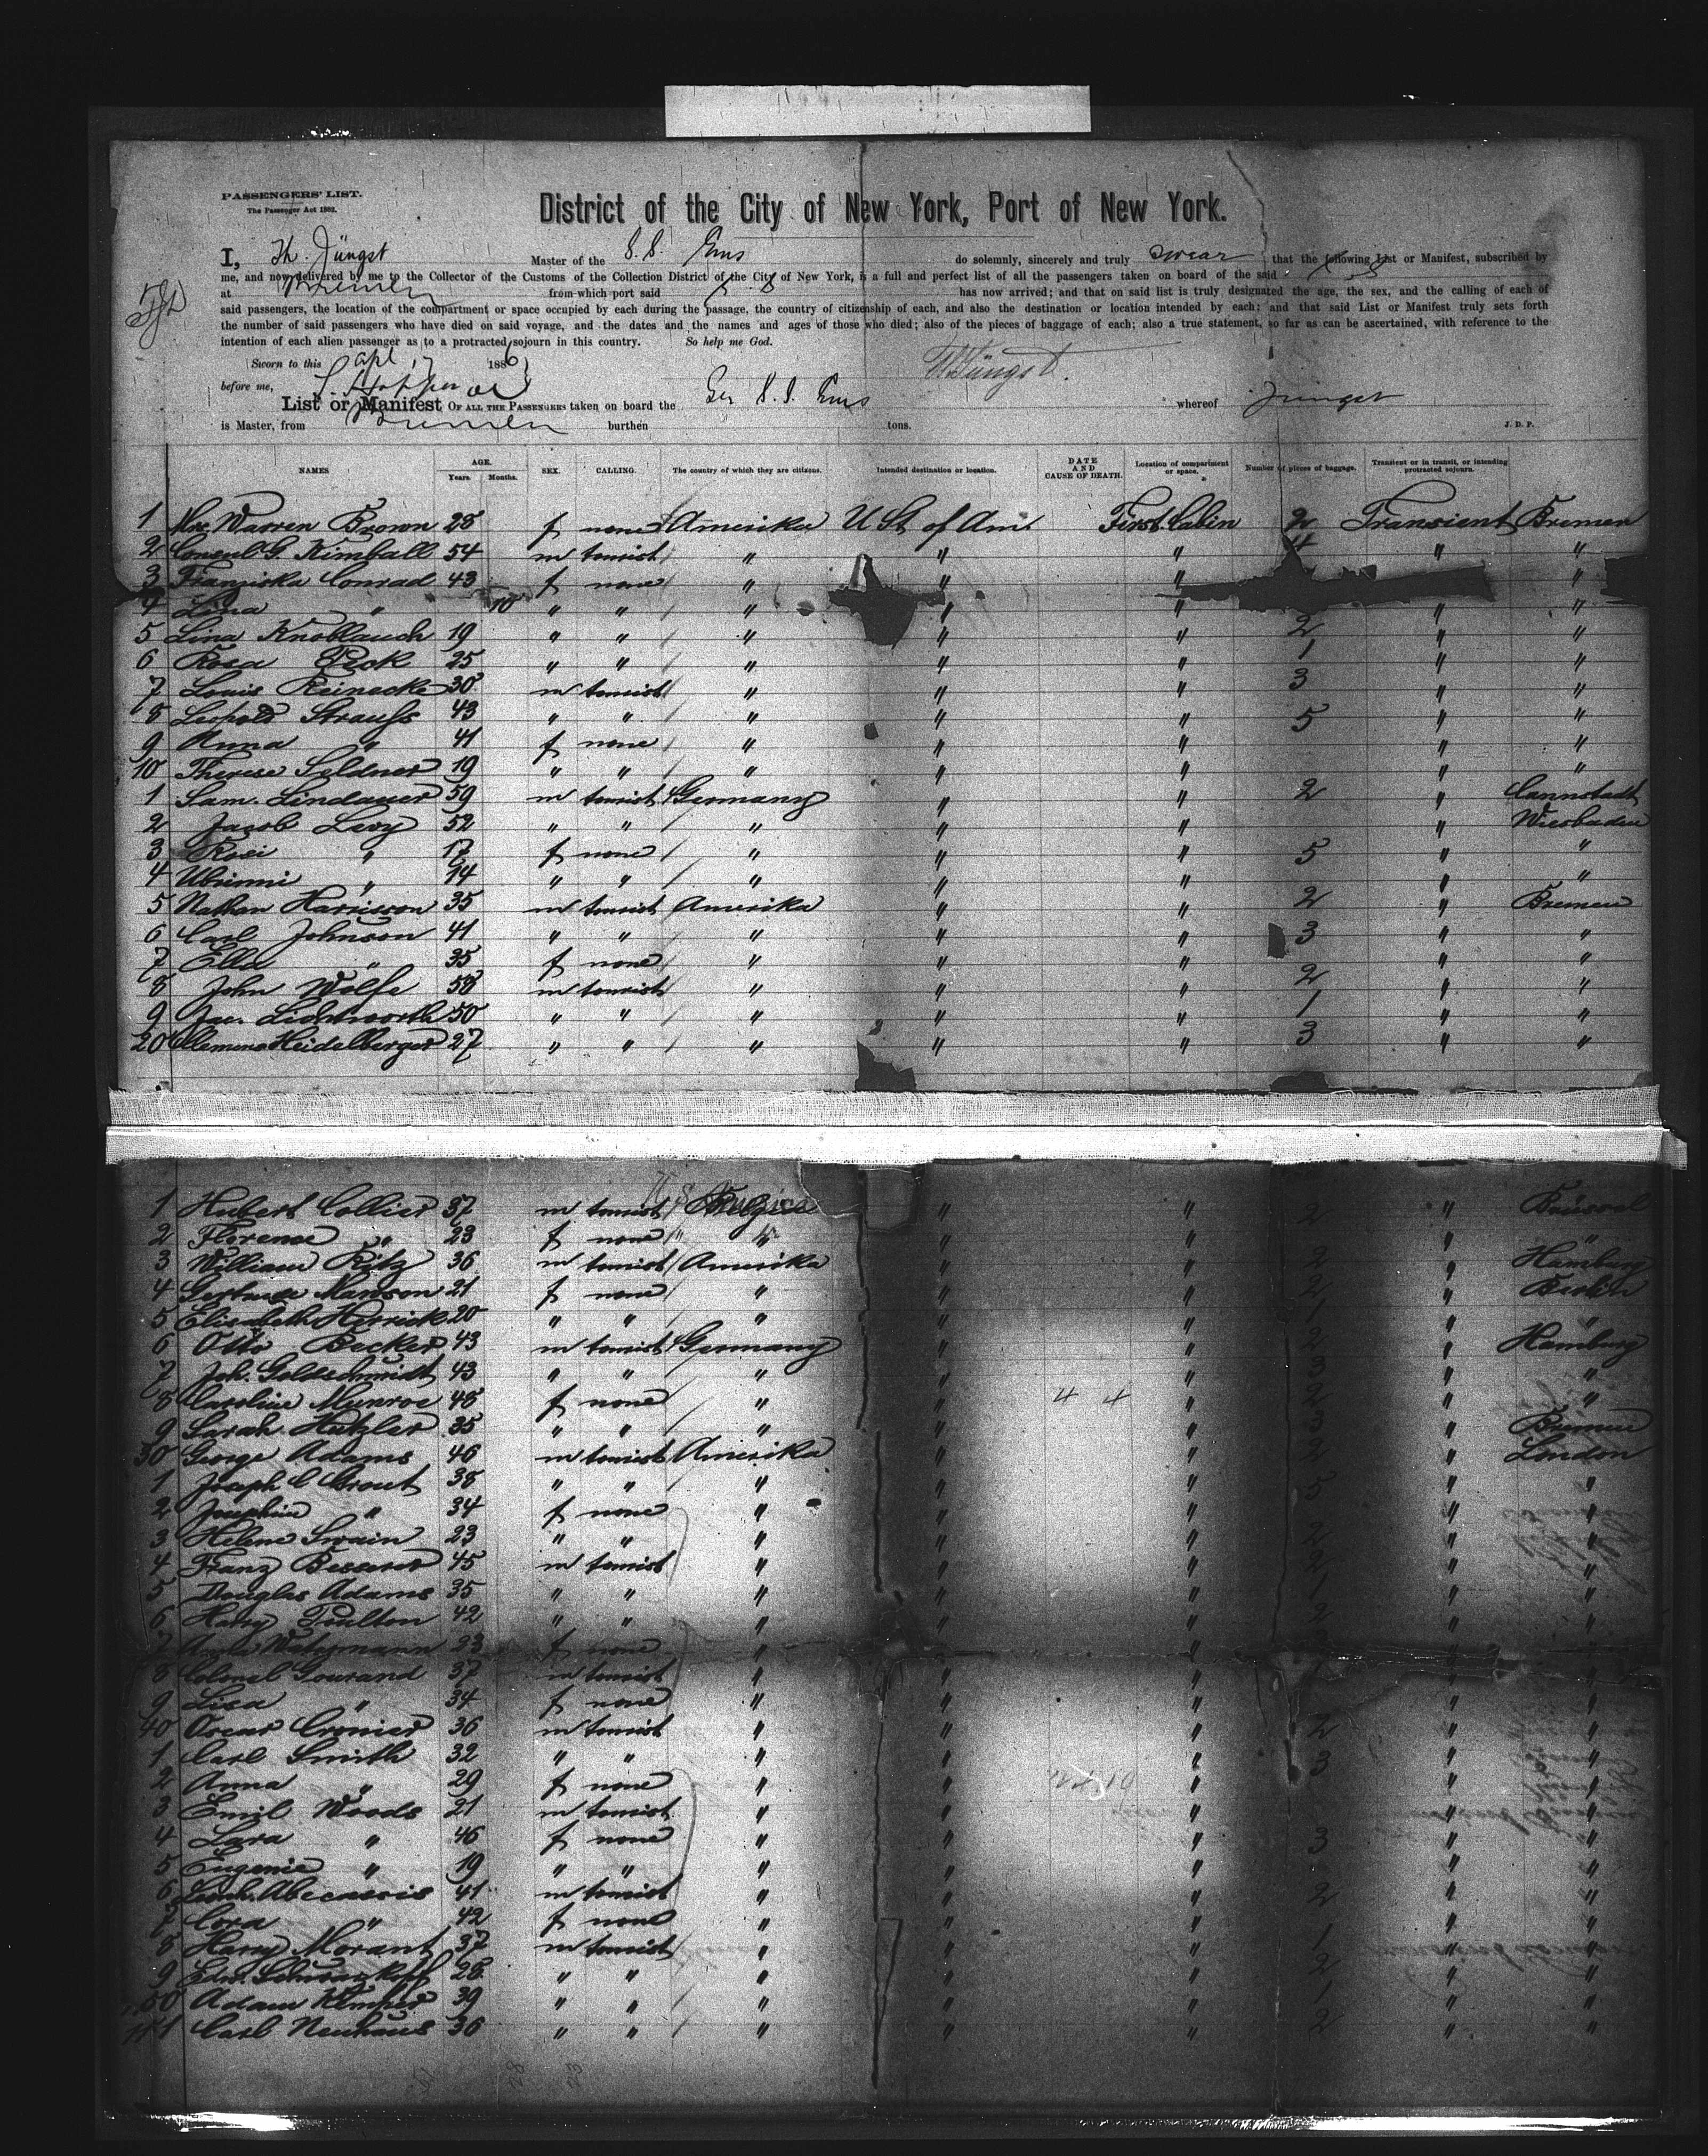 PASSENGERS' LIST.
The Passenger Act 1882.
District of the City of New York, Port of New York.
I, Th. Jüngst Master of the S.S. Ems do solemnly, sincerely and truly swear that the following List or Manifest, subscribed by
me, and now delivered by me to the Collector of the Customs of the Collection District of the City of New York, is a full and perfect list of all the passengers taken on board of the said
at Bremen from which port said S.S. has now arrived; and that on said list is truly designated the age, the sex, and the calling of each of
said passengers, the location of the compartment or space occupied by each during the passage, the country of citizenship of each, and also the destination or location intended by each; and that said List or Manifest truly sets forth
the number of said passengers who have died on said voyage, and the dates and the names and ages of those who died; also of the pieces of baggage of each; also a true statement, so far as can be ascertained, with reference to the
intention of each alien passenger as to a protracted sojourn in this country. So help me God.
Sworn to this Apl 17 1886
before me, Th Jüngst.
List or Manifest OF ALL THE PASSENGERS taken on board the Ger S.S. Ems whereof Jüngst
is Master, from Bremen burthen tons. J. D. P.
NAMES AGE. Years. Months. SEX. CALLING. The country of which they are citizens. Intended destination or location. DATE AND CAUSE OF DEATH. Location of compartment or space. Number of pieces of baggage. Transient or in transit, or intending protracted sojourn.
1 Mrs. Warren Brown 28 f none Amerika U St of Am. First Cabin 2 Transient Bremen
2 Consul G. Kimball 54 m tourist " " " 4 " "
3 Franziska Conrad 43 f none " " " "
4 Lina " 10 " " " " " " "
5 Lina Knoblauch 19 " " " " " 2 " "
6 Rosa Peck 25 " " " " " 1 " "
7 Louis Reinecke 30 m tourist " " " 3 " "
8 Leopold Strauss 43 " " " " " 5 " "
9 Anna " 41 f none " " " " "
10 Therese Seldner 19 " " " " " " "
1 Sam. Lindauer 59 m tourist Germany " " 2 " Cannstadt
2 Jacob Levy 52 " " " " " " Wiesbaden
3 Rosi " 17 f none " " " 5 " "
4 " 14 " " " " " " "
5 Nathan Harrisson 35 m tourist Amerika " " 2 " Bremen
6 Carl Johnson 41 " " " " " 3 " "
7 Ella " 35 f none " " " " "
8 John Wolfe 58 m tourist " " " 2 " "
9 Jac. Lichtworth 50 " " " " " 1 " "
20 Clemens Heidelberger 27 " " " " " 3 " "
1 Hubert Collier 37 m tourist Belgien " " 2 " Brüssel
2 Florence " 23 f none " " " " " "
3 William Ritz 36 m tourist Amerika " " 2 " Hamburg
4 Gertrude Manson 21 f none " " " 2 " Berlin
5 Elisabeth Herrick 20 " " " " " 1 " "
6 Otto Becker 43 m tourist Germany " " 2 " Hamburg
7 Joh. Goldschmidt 43 " " " " " 3 " "
8 Caroline Munroe 48 f none " " 4 4 " 2 " "
9 Sarah Hutzler 35 " " " " " 3 " Bremen
30 George Adams 46 m tourist Amerika " " 2 " London
1 Joseph C Grout 38 " " " " " 5 " "
2 Josephine " 34 f none " " " " "
3 Helene Swain 23 " " " " " 2 " "
4 Franz Besserer 45 m tourist " " " 2 " "
5 Douglas Adams 35 " " " " " 1 " "
6 Harry Poulton 42 " " " " " 2 " "
7 Anna Watzmann 23 f none " " " " "
8 Colonel Gourand 37 m tourist " " " " "
9 Lisa " 34 f none " " " " "
40 Oscar Cronier 36 m tourist " " " 2 " "
1 Carl Smith 32 " " " " " 3 " "
2 Anna " 29 f none " " " " "
3 Emil Woods 21 m tourist " " " " "
4 Lara " 46 f none " " " 3 " "
5 Eugenie " 19 " " " " " " "
6 Abecassis 41 m tourist " " " 2 " "
7 Cora " 42 f none " " " " "
8 Harry Morant 37 m tourist " " " 1 " "
9 Edw. Schwarzkopf 28 " " " " " 2 " "
50 Adam Kemper 39 " " " " " 1 " "
Carl Neuhaus 36 " " " " " 2 " "